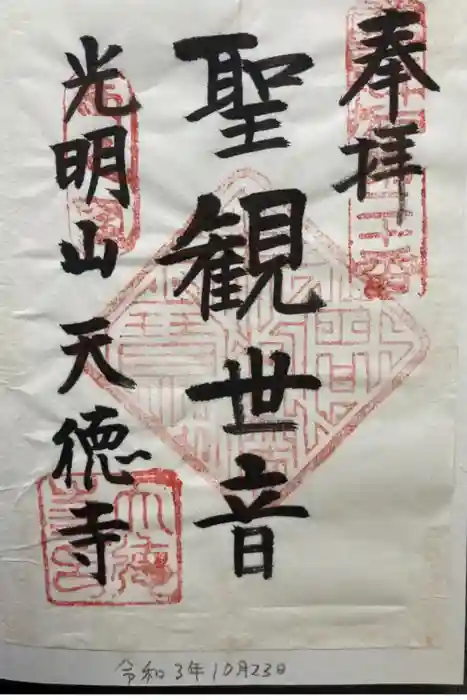 奉拝
聖観世音
光明山 天徳寺
令和3年10月23日